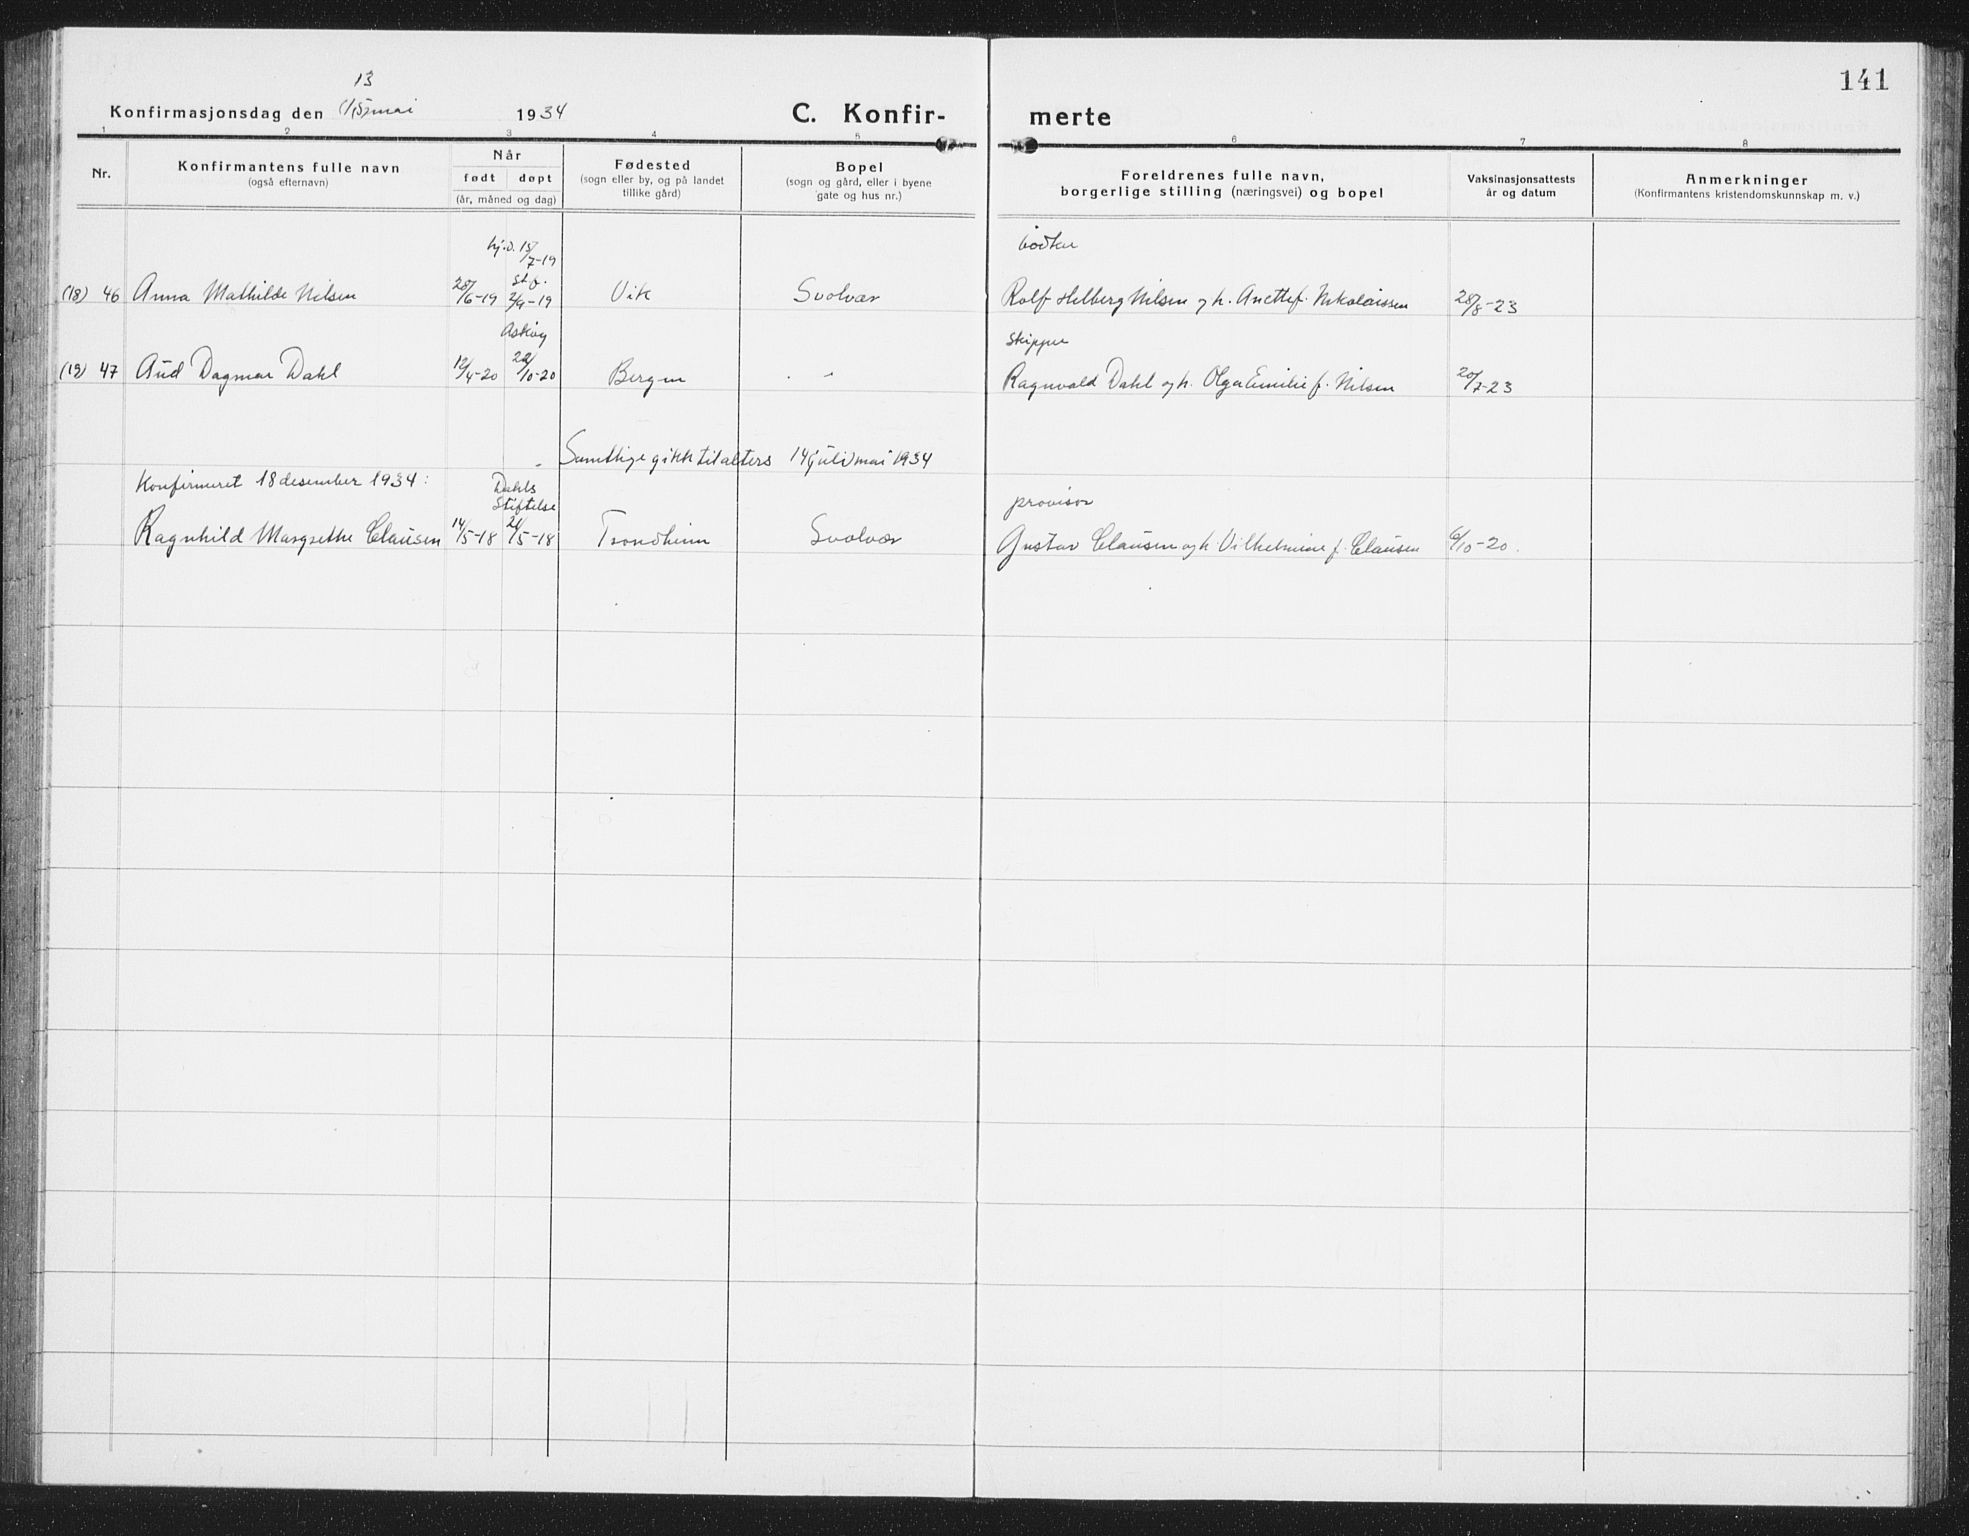 141
13
Konfirmasjonsdag den (15) mai 1934 C. Konfir- merte
1 2 3 4 5 6 7 8
Nr.
Konfirmantens fulle navn
(også efternavn)
Når
født døpt
(år, måned og dag)
Fødested
(sogn eller by, og på landet
tillike gård)
Bopel
(sogn og gård, eller i byene
gate og hus nr.)
Foreldrenes fulle navn,
borgerlige stilling (næringsvei) og bopel
Vaksinasjonsattests
år og datum
Anmerkninger
(Konfirmantens kristendomskunnskap m. v.)
hj.d. 15/7-19 bødker
st.f.
(18) 46 Anna Mathilde Nilsen 28/6-19 2/9-19 Vik Svolvær Rolf Helberg Nilsen og h. Anette f. Nikolaissen 28/8-23
Askøy skipper
(19) 47 Aud Dagmar Dahl 12/4-20 /10-20 Bergen - " - Ragnvald Dahl og h. Olga Emilie f. Nilsen 20/7-23
Samtlige gikk til alters 14 (juli) mai 1934
Konfirmeret 18 desember 1934: Dahls
Stiftelse provisor
Ragnhild Margrethe Clausen 14/5-18 /5-18 Trondheim Svolvær Gustav Clausen og h. Vilhelmine f. Clausen 6/10-20.